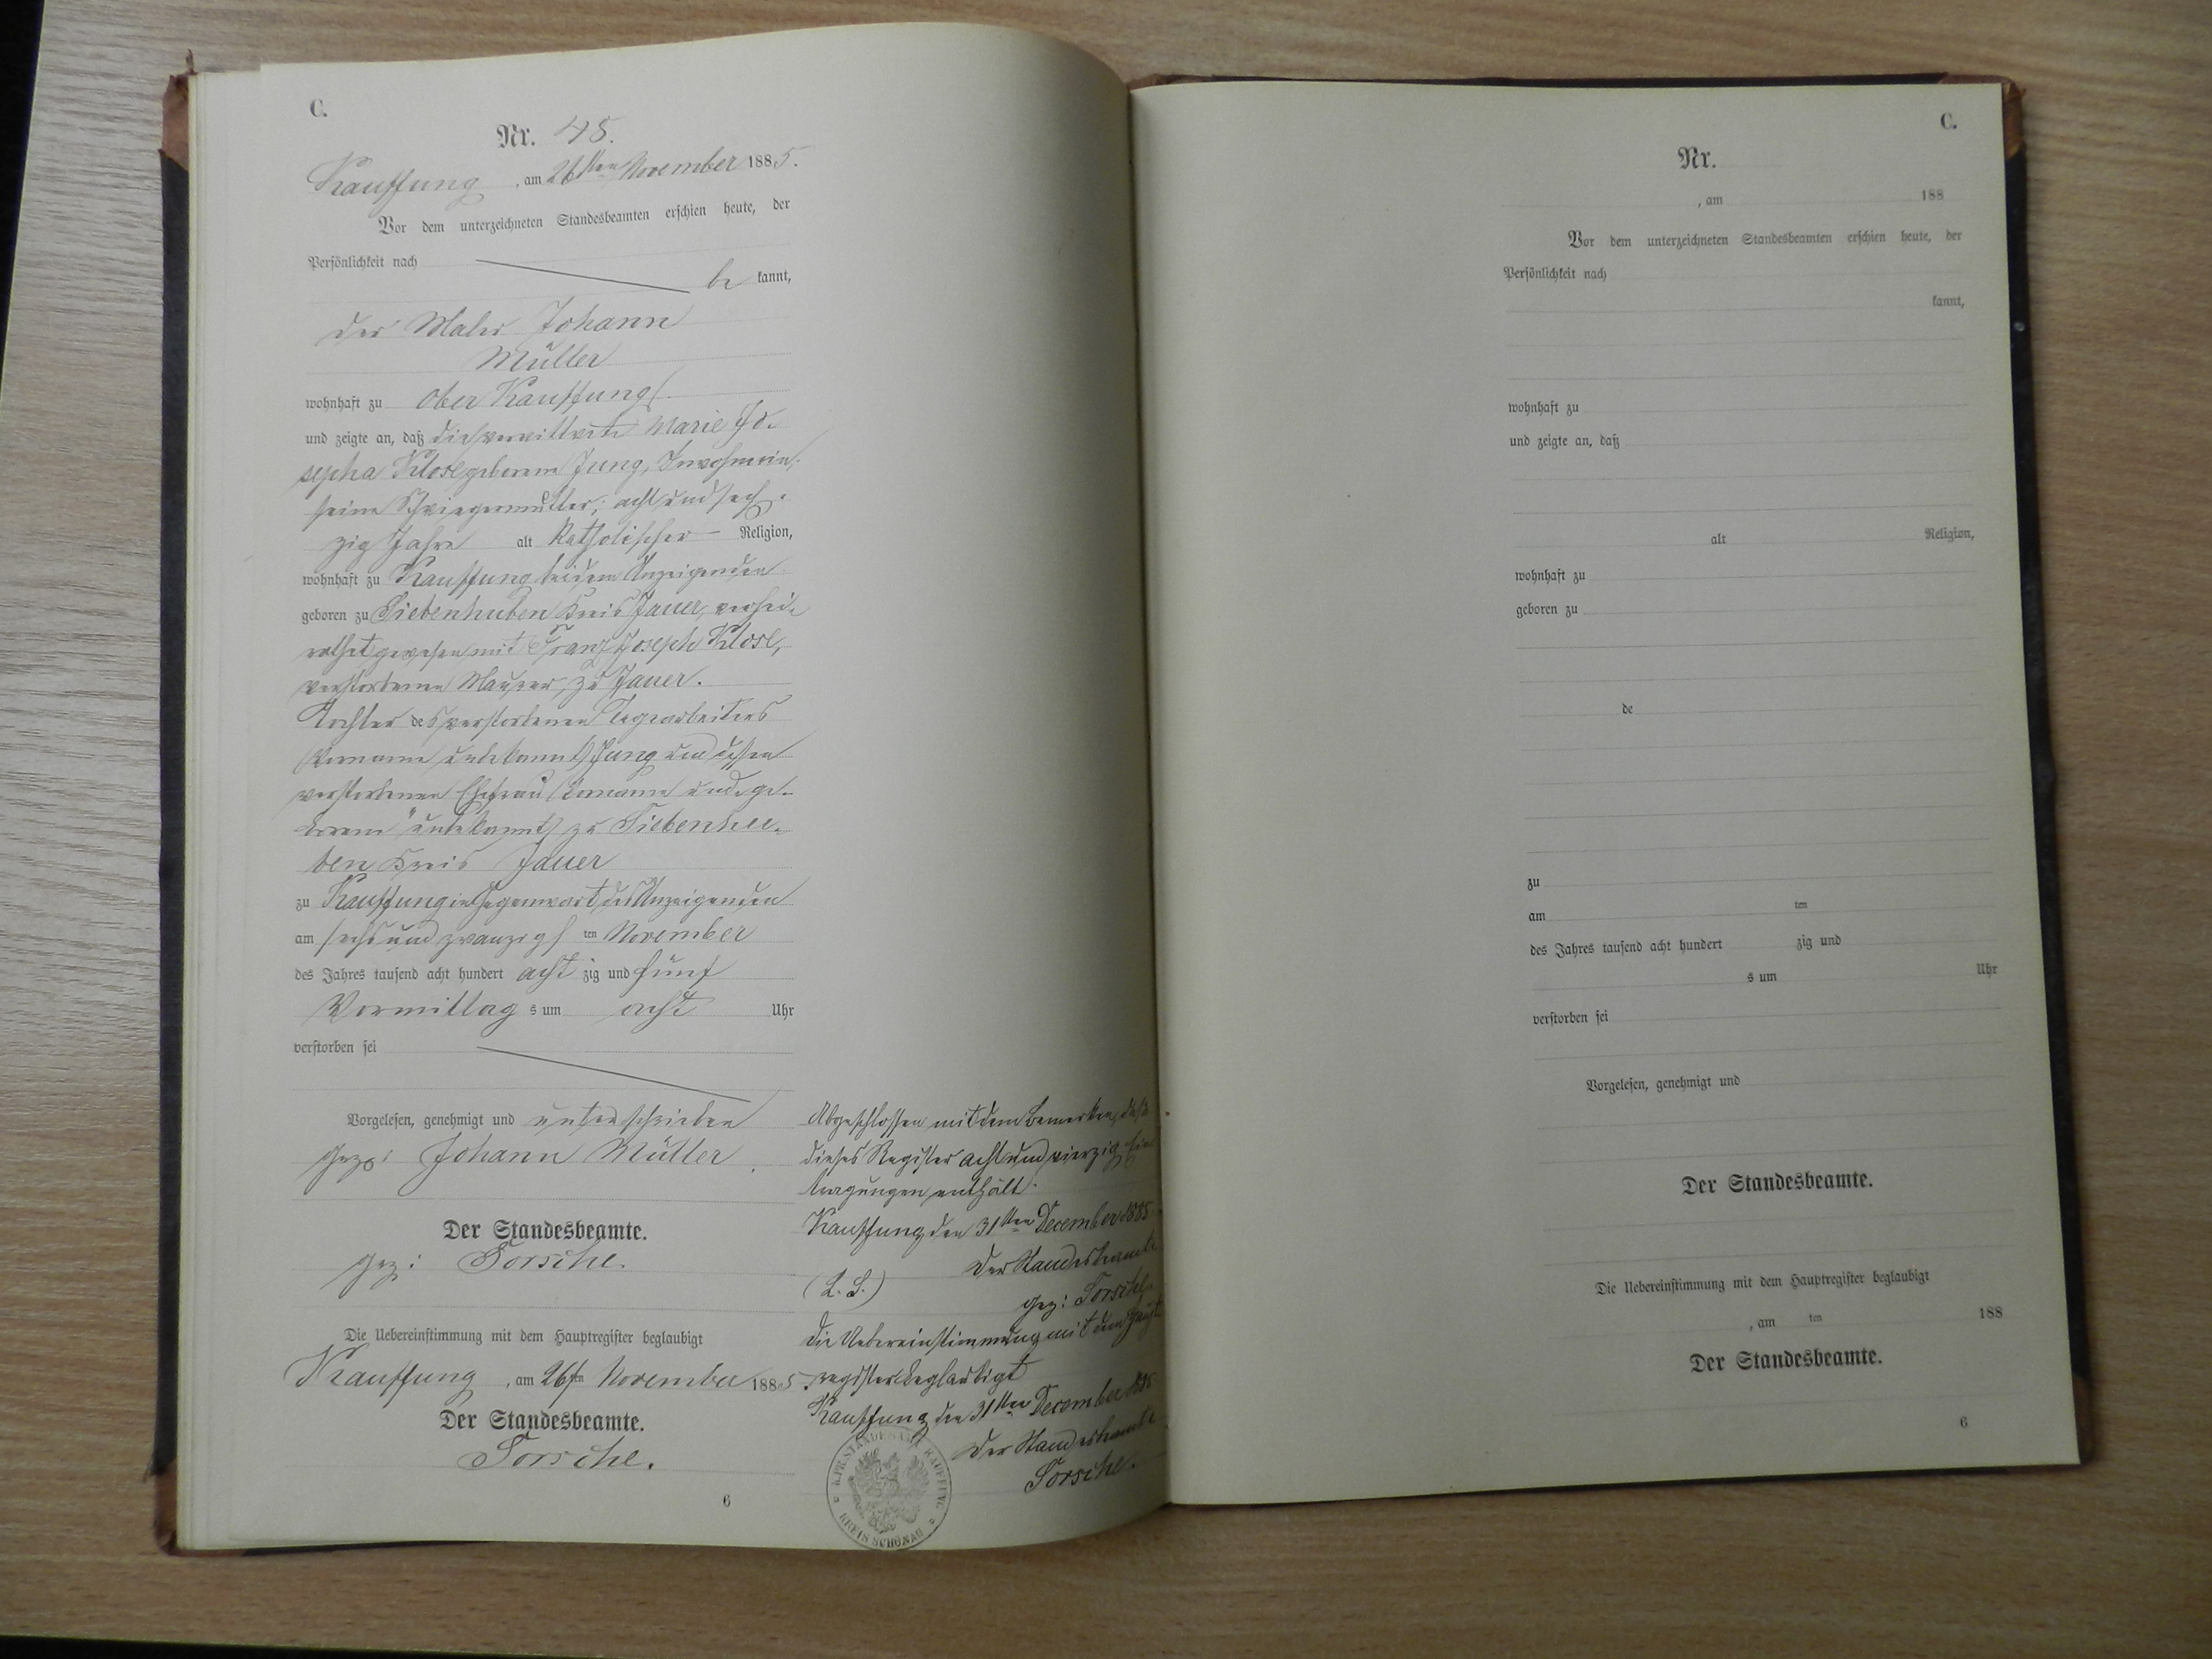 C.
Nr. 48.
Kauffung, am 26ten November 1885.
Vor dem unterzeichneten Standesbeamten erschien heute, der
Persönlichkeit nach
be kannt,
der Maler Johann
Müller
wohnhaft zu Ober Kauffung
und zeigte an, daß die verwittwete Marie Jo-
sepha Klose geborene Jung, Inwohnerin,
seine Schwiegermutter, acht und sech-
zig Jahre alt katholischer Religion,
wohnhaft zu Kauffung bei dem Anzeigenden
geboren zu Siebenhuben Kreis Jauer, verhei-
rathet gewesen mit Franz Joseph Klose,
verstorbenen Maurer, zu Jauer.
Tochter des verstorbenen Tagearbeiters
(Vorname unbekannt) Jung und dessen
verstorbenen Ehefrau (Vorname und "ge-
borene" unbekannt) zu Siebenhu-
ben Kreis Jauer
zu Kauffung in Gegenwart des Anzeigenden
am sechs und zwanzigs ten November
des Jahres tausend acht hundert acht zig und fünf
Vormittag s um acht Uhr
verstorben sei
Vorgelesen, genehmigt und unterschrieben
gez: Johann Müller
Der Standesbeamte.
gez: Torsche.
Die Uebereinstimmung mit dem Hauptregister beglaubigt
Kauffung, am 26ten November 1885.
Der Standesbeamte.
Torsche.
6
Abgeschlossen mit dem Bemerken, daß
dieses Register acht und vierzig Ein
tragungen enthält.
Kauffung, den 31ten December 1885
Der Standesbeamte
(L. S.)
gez: Torsche
Die Uebereinstimmung mit dem Haupt
register beglaubigt
Kauffung den 31ten December 1885
Der Standesbeamte
Torsche.
K. PR. STANDESAMT KAUFFUNG
KREIS SCHÖNAU
C.
Nr.
, am 188
Vor dem unterzeichneten Standesbeamten erschien heute, der
Persönlichkeit nach
kannt,
wohnhaft zu
und zeigte an, daß
alt Religion,
wohnhaft zu
geboren zu
de
zu
am ten
des Jahres tausend acht hundert zig und
s um Uhr
verstorben sei
Vorgelesen, genehmigt und
Der Standesbeamte.
Die Uebereinstimmung mit dem Hauptregister beglaubigt
, am ten 188
Der Standesbeamte.
6